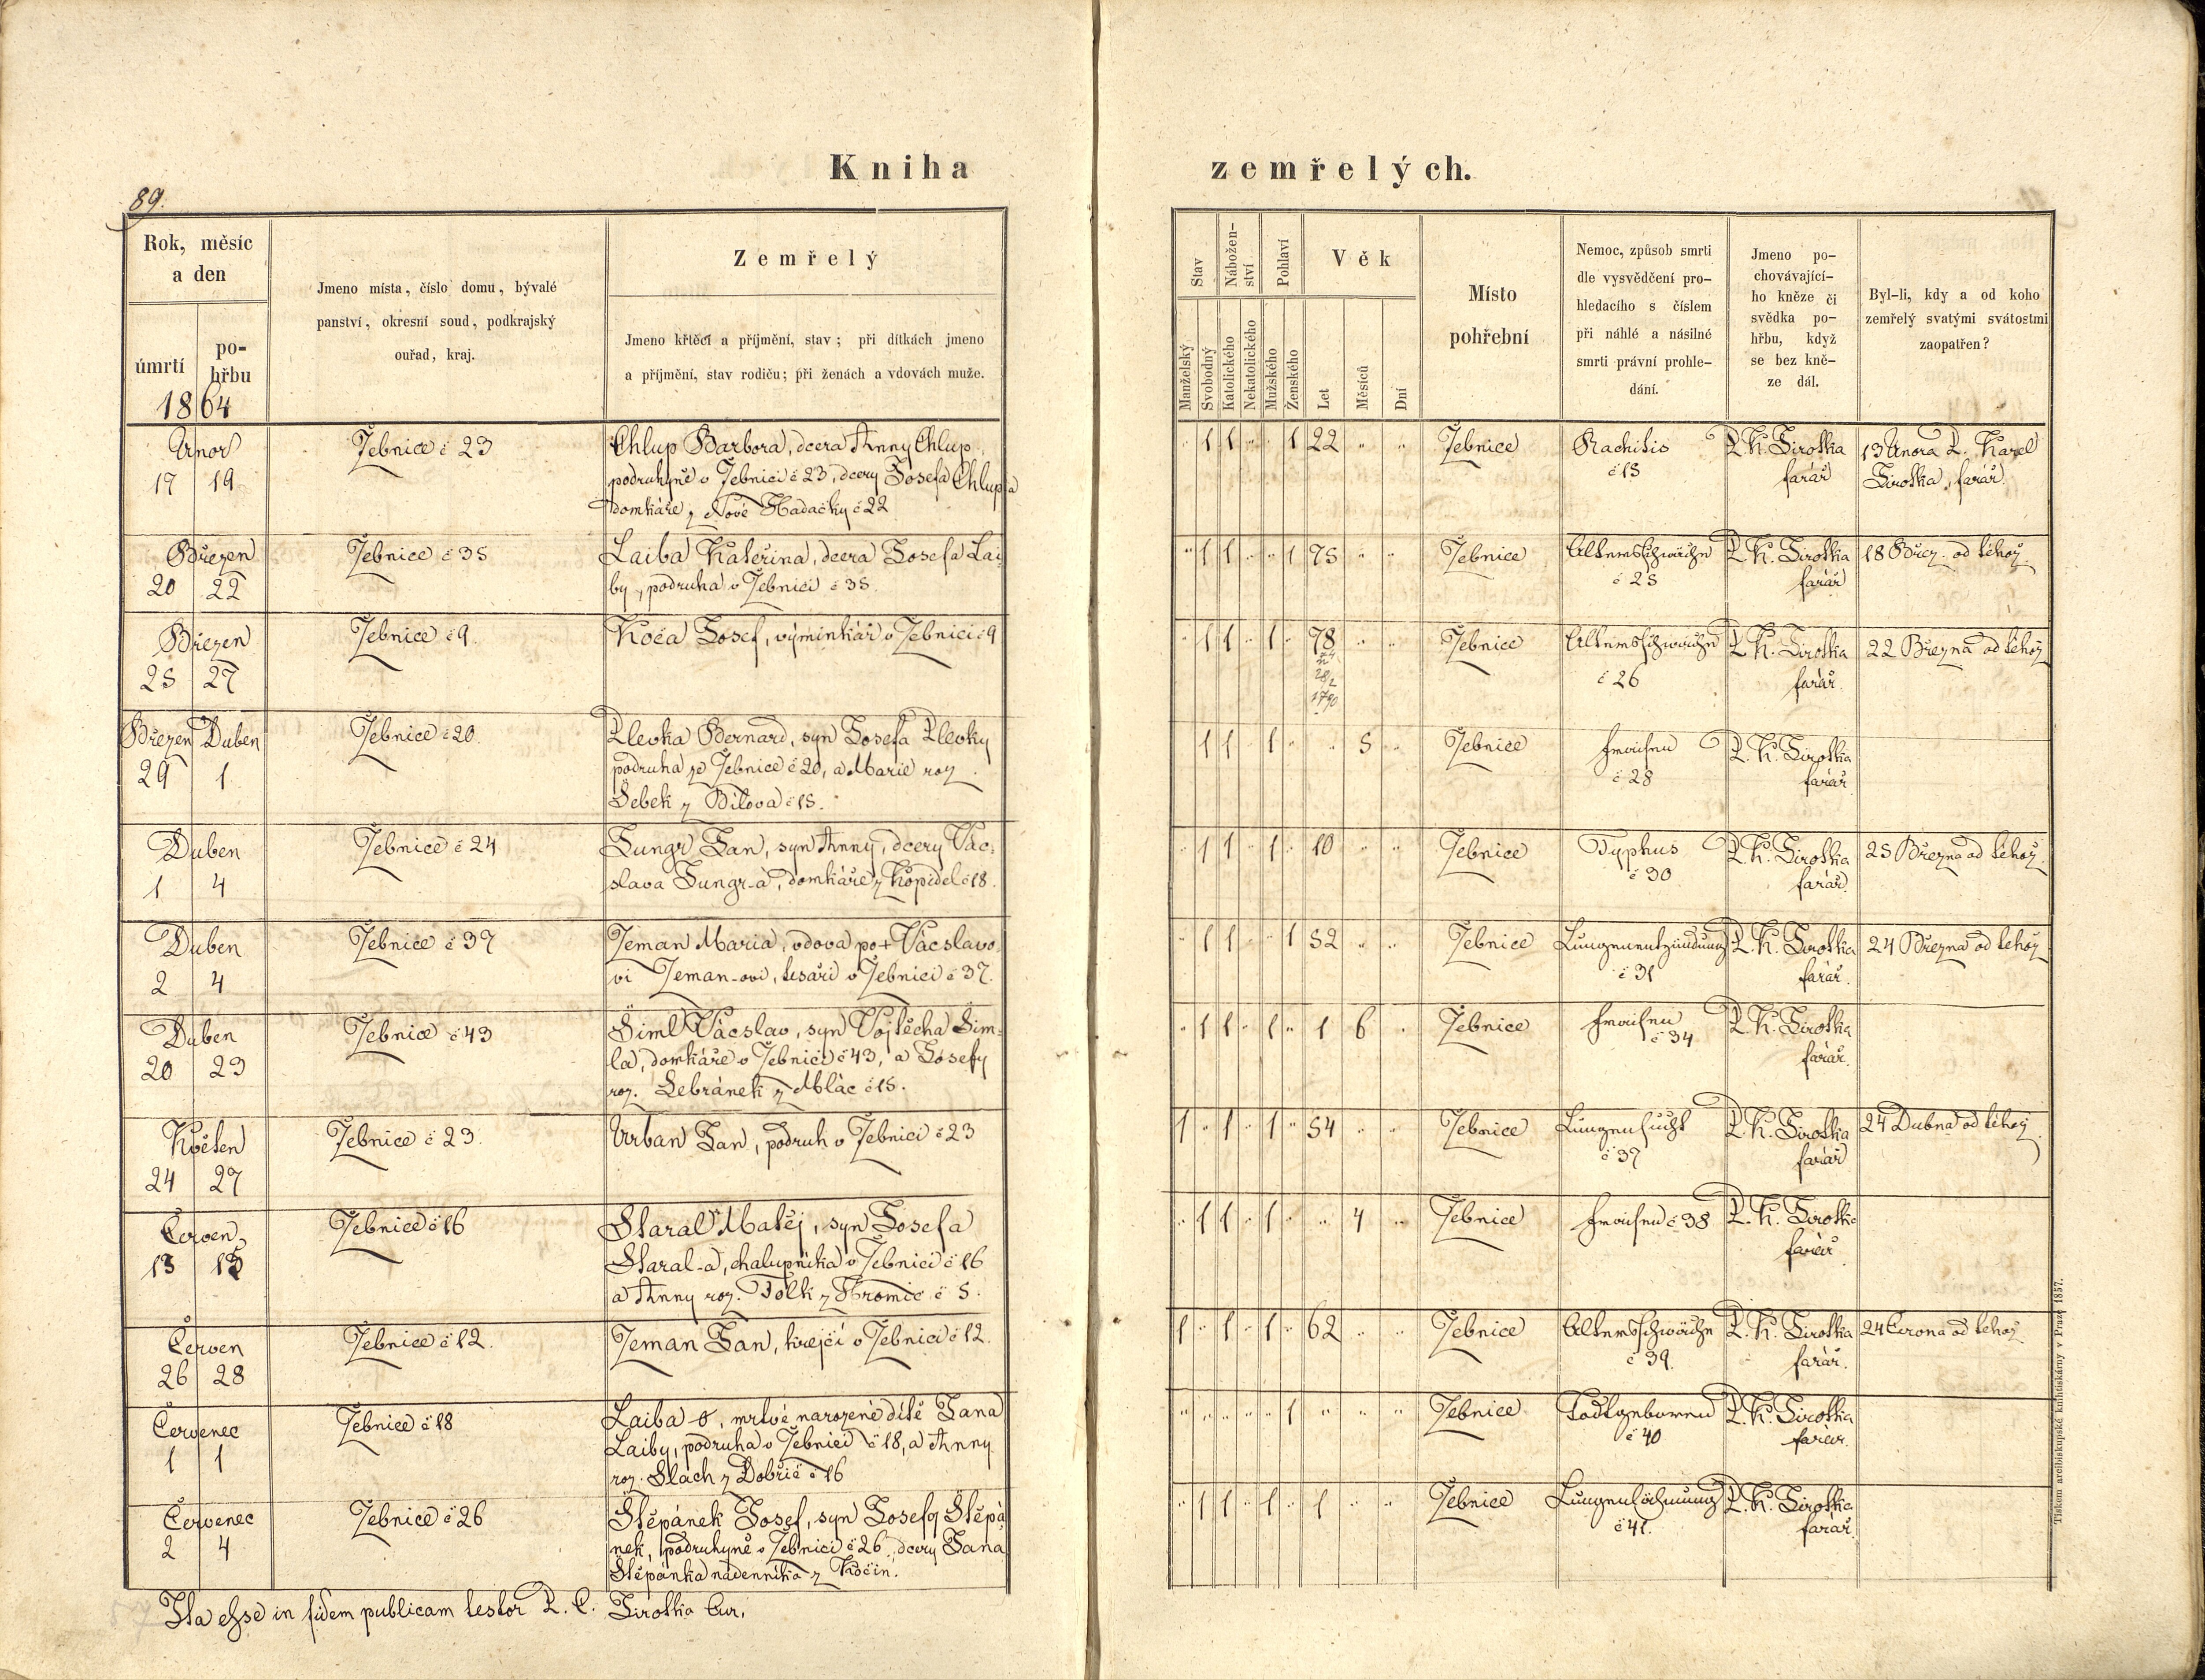 Kniha zemřelých.
89.
Rok, měsíc
a den
úmrtí
po-
hřbu
1864
Jmeno místa, číslo domu, bývalé
panství, okresní soud, podkrajský
ouřad, kraj.
Zemřelý
Jmeno křtěcí a příjmění, stav; při dítkách jmeno
a příjmění, stav rodičů; při ženách a vdovách muže.
Stav
Manželský
Svobodný
Nábožen-
ství
Katolického
Nekatolického
Pohlaví
Mužského
Ženského
Věk
Let
Měsíců
Dní
Místo
pohřební
Nemoc, způsob smrti
dle vysvědčení pro-
hledacího s číslem
při náhlé a násilné
smrti právní prohle-
dání.
Jmeno po-
chovávající-
ho kněze či
svědka po-
hřbu, když
se bez kně-
ze dál.
Byl-li, kdy a od koho
zemřelý svatými svátostmi
zaopatřen?
Únor
17 19
Žebnice č 23
Chlup Barbora, dcera Anny Chlup
podruhyně v Žebnici č 23, dcery Josefa Chlupa
domkáře z Nové Hadačky č 22
" 1 1 " " 1 22 " "
Žebnice
Rachitis
č 15
P. K. Sirotka
farář
13 Února P. Karel
Sirotka, farář.
Březen
20 22
Žebnice č 35
Laiba Kateřina, dcera Josefa Lai-
by, podruha v Žebnici č 35.
" 1 1 " " 1 75 " "
Žebnice
Altersschwäche
č 25
P. K. Sirotka
farář
18 Břez. od téhož
Březen
25 27
Žebnice č 9.
Koča Josef, výminkář v Žebnici č 9
" 1 1 " 1 " 78 " "
Žebnice
Altersschwäche
č 26
P. K. Sirotka
farář.
22 Března od téhož
Březen Duben
29 1
Žebnice č 20.
Plevka Bernard, syn Josefa Plevky
podruha ze Žebnice č 20, a Marie roz.
Šebek z Bílova č 15.
1 1 " 1 " " 5 "
Žebnice
Fraisen
č 28
P. K. Sirotka
farář.
Duben
1 4
Žebnice č 24
Jungr Jan, syn Anny, dcery Vác-
slava Jungr-a, domkáře z Kopidel č 18.
" 1 1 " 1 " 10 " "
Žebnice
Typhus
č 30
P. K. Sirotka
farář.
25 Března od téhož.
Duben
2 4
Žebnice č 37
Zeman Maria, vdova po + Vácslavo-
vi Zeman-ovi, tesaři v Žebnici č 37.
" 1 1 " " 1 52 " "
Žebnice
Lungenentzündung
č 31
P. K. Sirotka
farář.
24 Března od téhož
Duben
20 23
Žebnice č 43
Šiml Vácslav, syn Vojtěcha Šim-
la, domkáře v Žebnici č 43, a Josefy
roz. Lebránek z Mlác č 15.
" 1 1 " 1 " 1 6 "
Žebnice
Fraisen
č 34
P. K. Sirotka
farář.
Květen
24 27
Žebnice č 23.
Urban Jan, podruh v Žebnici č 23
1 " 1 " 1 " 54 " "
Žebnice
Lungensucht
č 37
P. K. Sirotka
farář
24 Dubna od téhož
Červen
13 15
Žebnice č 16
Staral Matěj, syn Josefa
Staral-a, chalupníka v Žebnici č 16
a Anny roz. Tolk z Hromic č 5.
" 1 1 " 1 " " 4 "
Žebnice
Fraisen č 38
P. K. Sirotka
farář
Červen
26 28
Žebnice č 12.
Zeman Jan, krejčí v Žebnici č 12.
1 " 1 " 1 " 62 " "
Žebnice
Altersschwäche
č 39.
P. K. Sirotka
farář.
24 Června od téhož
Červenec
1 1
Žebnice č 18
Laiba -0, mrtvě narozené dítě Jana
Laiby, podruha v Žebnici č 18, a Anny
roz. Slach z Dobříč č 16
" " " " " 1 " " "
Žebnice
Todtgeboren
č 40
P. K. Sirotka
farář.
Červenec
2 4
Žebnice č 26
Štěpánek Josef, syn Josefy Štěpá-
nek, podruhyně v Žebnici č 26, dcery Jana
Štěpánka nádenníka z Kočín.
" 1 1 " 1 " 1 " "
Žebnice
Lungenlähmung
č 41.
P. K. Sirotka
farář.
Ita esse in fidem publicam testor P. C. Sirotka Cur.
Tiskem arcibiskupské knihtiskárny v Praze 1857.